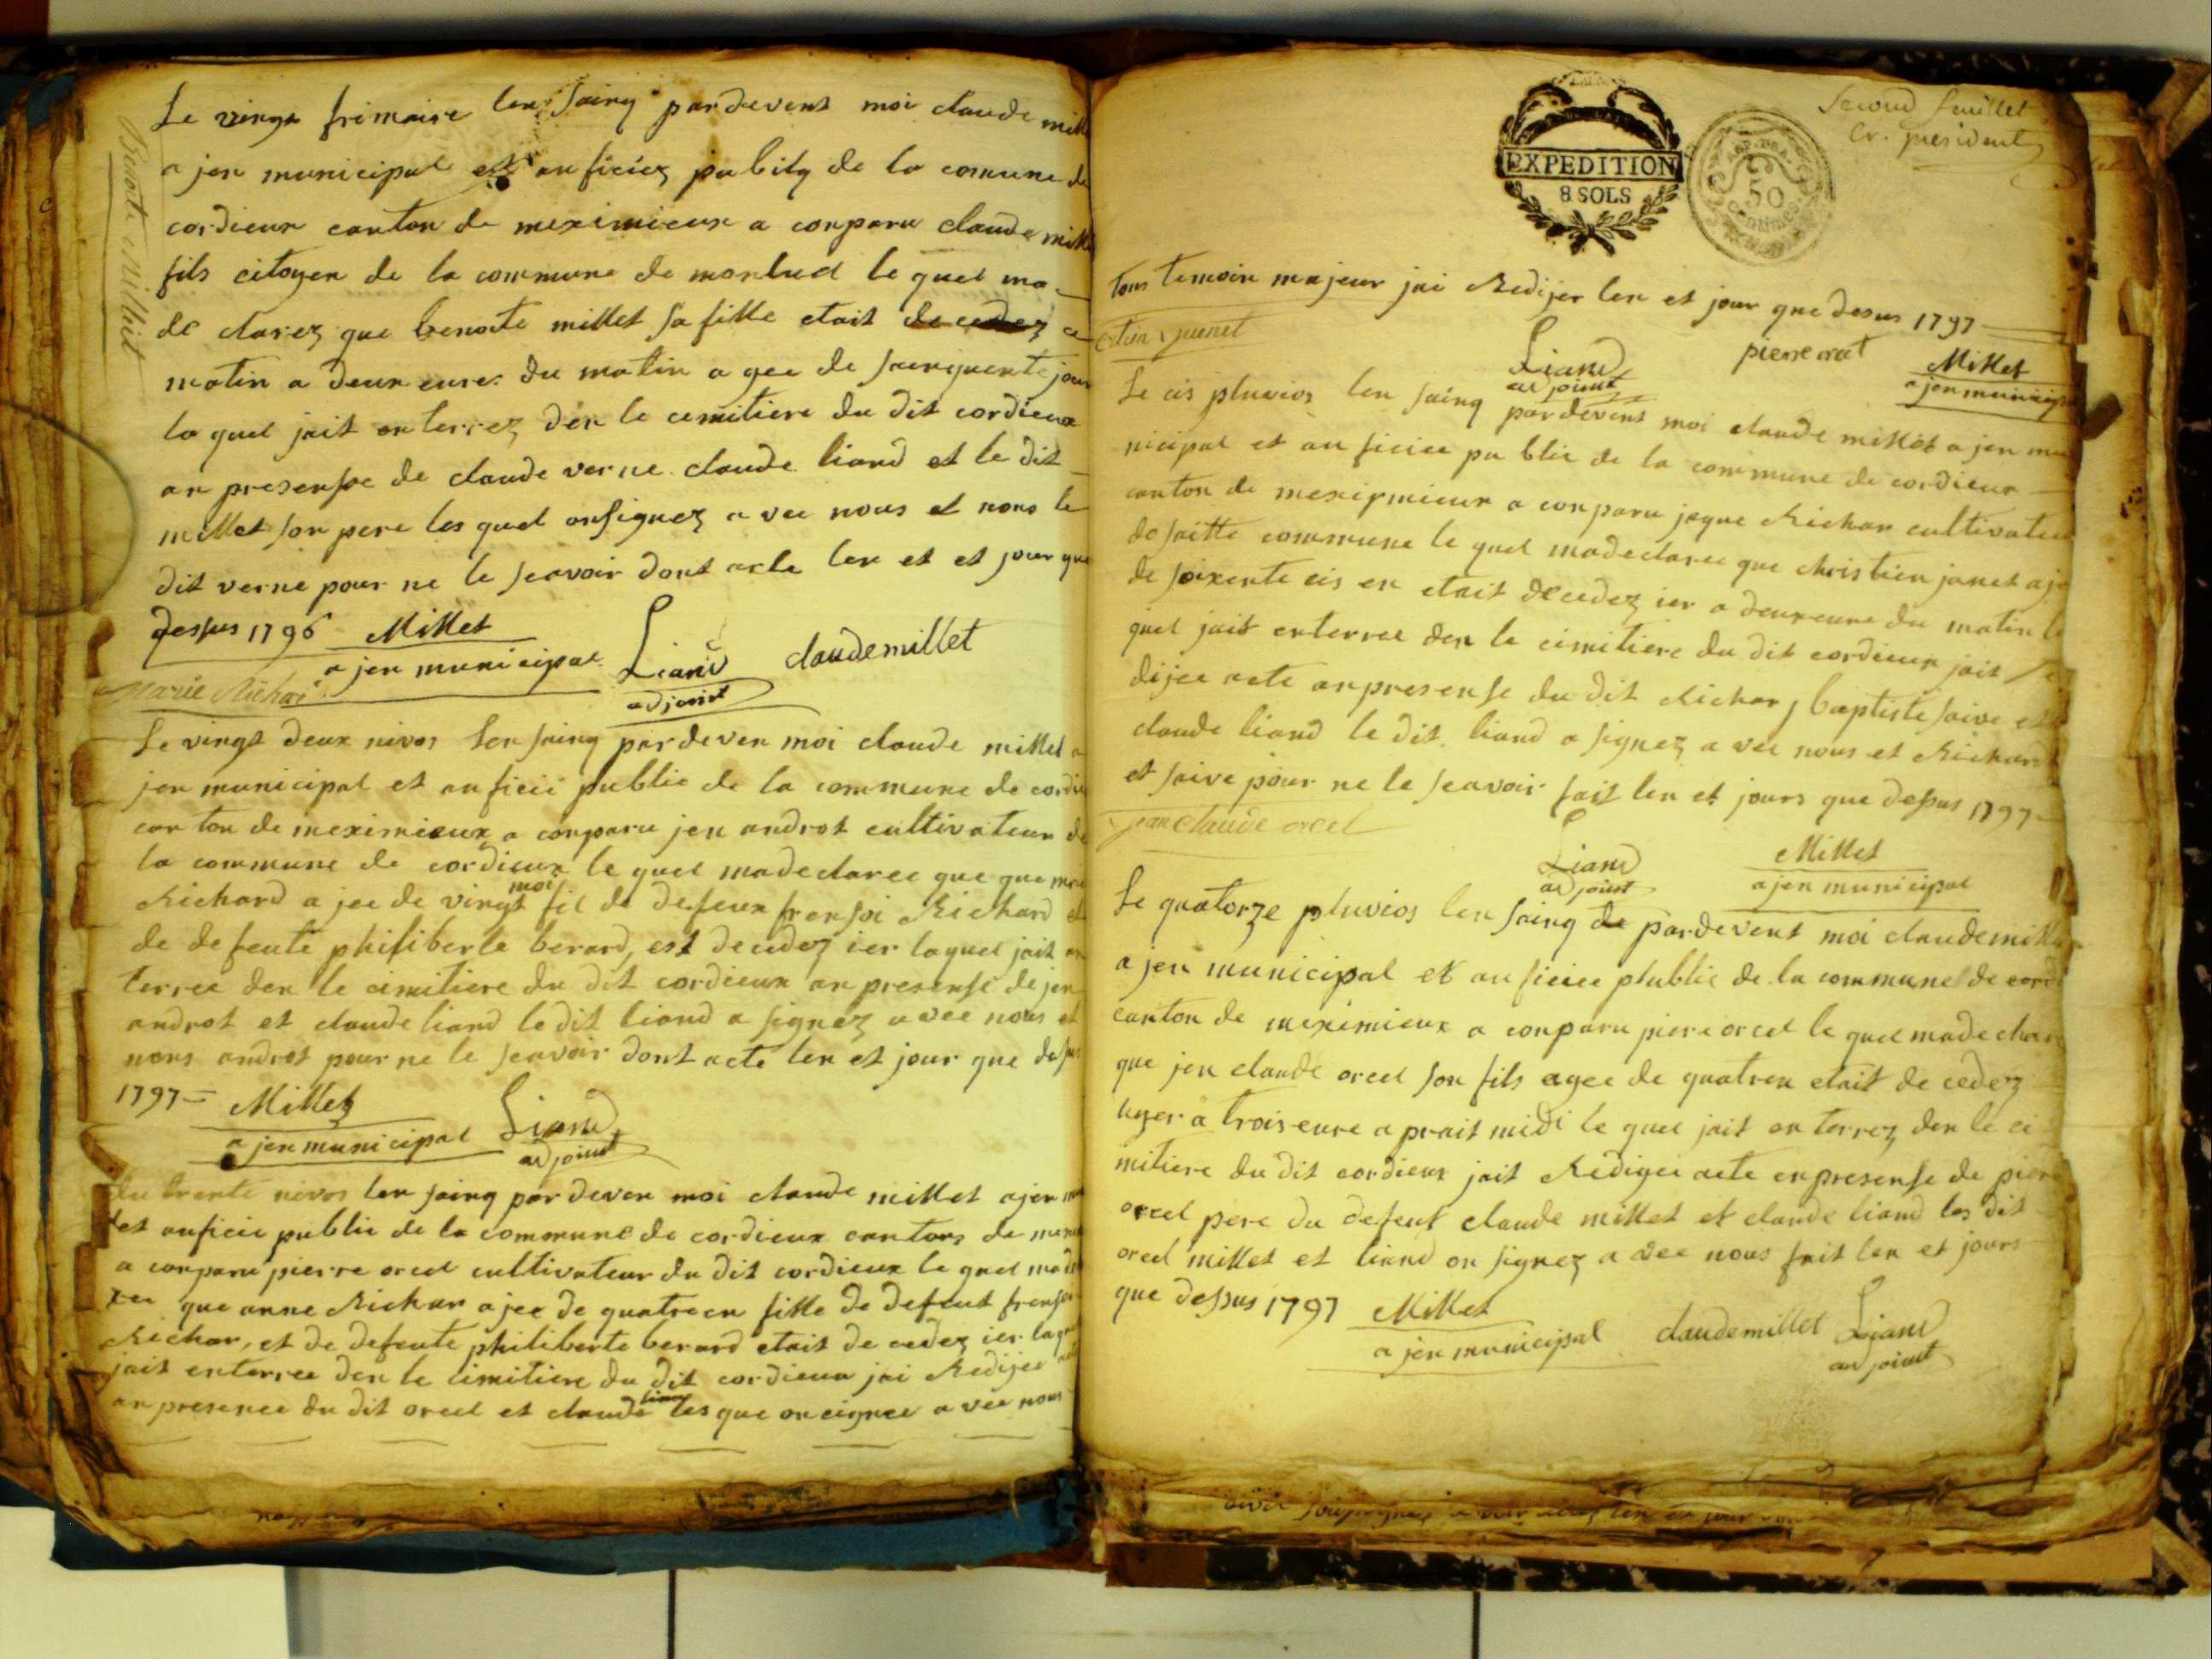 Benoite Milliet
Le vingt frimaire len saing pardevent moi claude mill
a jen municipal et auficiez publiq de la comune de
cordieux canton de meximieux a conparu claude mill
fils citoyen de la commune de monluel le quel ma
de clarez que benoite millet sa fille etait de cedez ce
matin a deux eures du matin a gee de sainquente jour
la quel jait enterrez den le cemitiere du dit cordieux
an presensse de claude verne claude liand et le dit
millet son pere les quel onsignez a vec nous et nons le
dit verne pour ne le scavoir dont acte len et et jour que
dessus 1796 Millet
a jen municipal Liand claudemillet
adjoint
Marie Richar
Le vingt deux nivos len saing pardeven moi claude millet a
jen municipal et auficié public de la commune de cordi
canton de meximieux a conparu jen androt cultivateur de
la commune de cordieux le quel madeclaree que que ma
Richard a jee de vingt moi fil de defeux fransoi Richard et
de defeute philiberte berard, est decedez ier laquel jait en
terree den le cimitiere du dit cordieux an presense de jen
androt et claude liand le dit liand a signez a vec nous et
nons androt pour ne le scavoir dont acte len et jour que dessus
1797 = Millet Liand
a jen municipal adjoint
du trente nivos len saing pardeven moi claude millet ajen mu
et auficié public de la commune de cordieux cantons de mexi
a conparu pierre orcel cultivateur du dit cordieux le quel made
ree que anne Richar ajee de quatreen fille de defeut fransoi
Richar, et de defeute philiberte berard etait de cedez ier laquel
jait enterree den le cimitiere du dit cordieux jai Redijee
an presence du dit orcel et claude liand les que on cignee a vec nous
Second feuillet
Cr. president
EXPEDITION
8 SOLS
50
centimes
tous temoin majeur jai Redijer len et jour que desus 1797
Liand pierre orcel Millet
adjoint a jen municipa
Le cis pluvios len saing pardevent moi claude millet a jen mu
nicipal et au ficiee pu blic de la commune de cordieux
canton de mexipmieux a conparu jaque Richar cultivateu
de saitte commune le quel madeclaree que christien janet aje
de soixente cis en etait decedez ier a deux eure du matin le
quel jait enterree den le cimitiere du dit cordieux jait Re
dijee acte anpresense du dit Richar, baptiste saive et
claude liand le dit liand a signez a vec nous et Richard
et saive pour ne le scavoir fait len et jours que dessus 1797
jean claude orcel
Liand Millet
adjoint a jen municipal
Le quatorze pluvios len saing de pardevent moi claudemillet
a jen municipal et au ficiee plublic de la commune de cord
canton de meximieux a conparu piere orcel le quel madeclar
que jen claude orcel son fils agee de quatren etait de cedez
hyer a trois eure a prait midi le quel jait enterrez den le ci
mitiere du dit cordieux jait Redigee acte enpresense de piere
orcel pere du defeut claude millet et claude liand les dit
orcel millet et liand on signez a vec nous fait len et jours
que dessus 1797 Millet
a jen municipal claudemillet Liand
adjoint